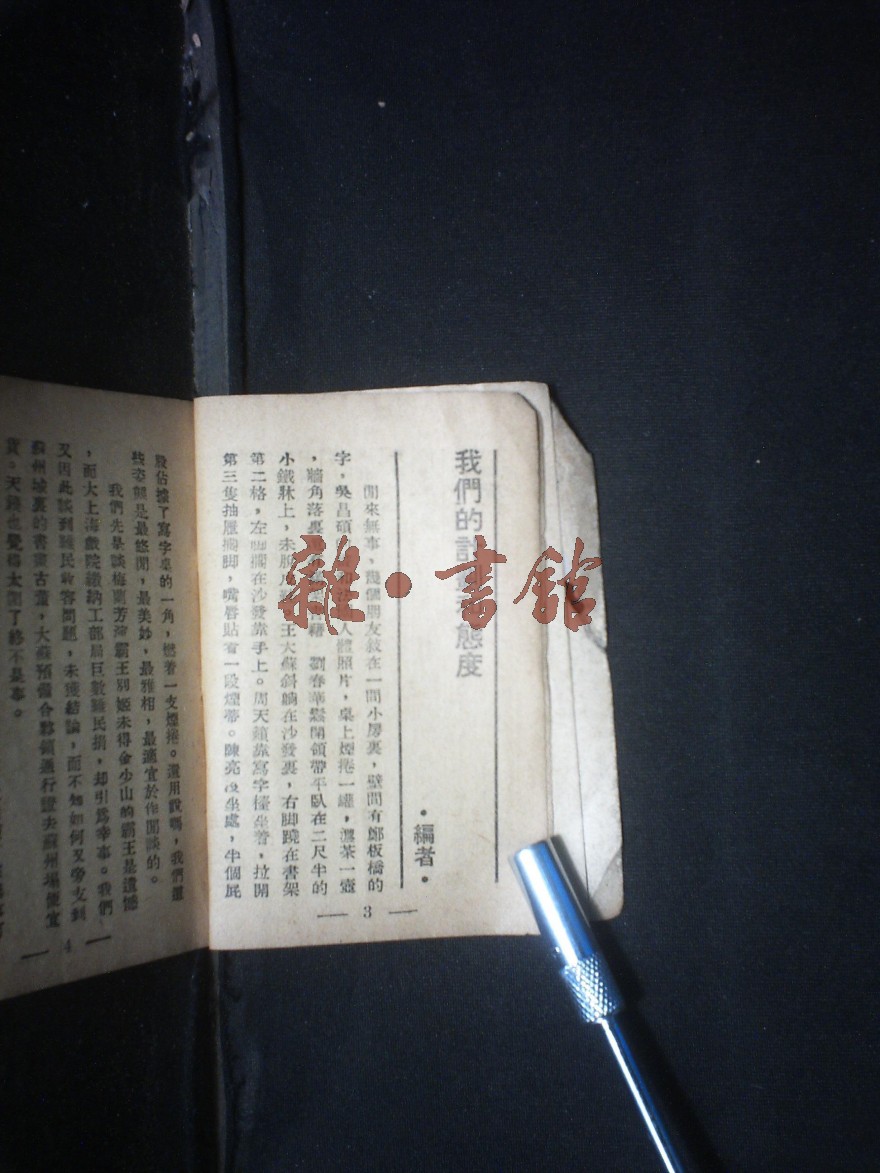 我們的計劃和態度
•編者•
閒來無事，幾個朋友敍在一間小房裏，壁間有鄭板橋的
字，吳昌碩 人體照片，桌上煙捲一罐，濃茶一壺
，牆角落裏 書籍 劉春華鬆開領帶平臥在二尺半的
小鐵牀上，未脫 王大蘇斜躺在沙發裏，右脚蹺在書架
第二格，左脚擱在沙發靠手上。周天籟靠寫字檯坐着，拉開
第三隻抽屜擱脚，嘴唇貼有一段煙蒂。陳亮 坐處，半個屁
3
股佔據了寫字桌的一角，燃着一支煙捲。還用說嗎，我們這
些姿態是最悠閒，最美妙，最雅相，最適宜於作閒談的。
我們先是談梅蘭芳演霸王別姬未得金少山的霸王是遺憾
，而大上海戲院繳納工部局巨數難民捐，却引爲幸事。我們
又因此談到難民收容問題，未獲結論，而不知如何又旁支到
蘇州城裏的書畫古董，大蘇預備合夥領通行證去蘇州塲便宜
貨。天籟也覺得太閒了終不是事。
4
雜•書館